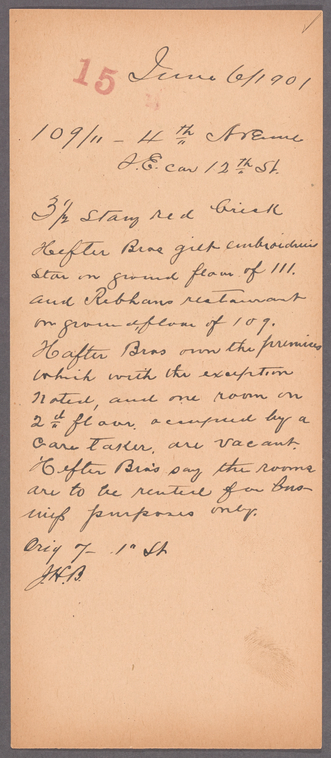 15
June 6/1901
109/11 - 4th Avenue
S.E. cor 12th St.
3 1/2 Story red brick
Hefter Bros gilt embroideries
Store on ground floor of 111.
and Rebhans restaurant
on ground floor of 109.
Hafter Bros own the premises
which with the exception
noted, and one room on
2d floor, occupied by a
care taker, are vacant.
Hefter Bros say the rooms
are to be rented for bus-
iness purposes only.
Orig 7- 1" St
J.H.B.